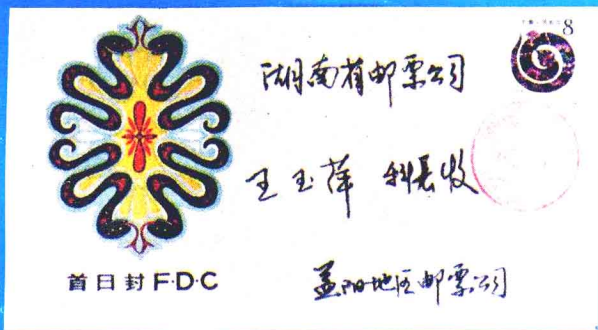 8
湖南省邮票公司
王玉萍 科长收
首日封 F·D·C
益阳地区邮票公司